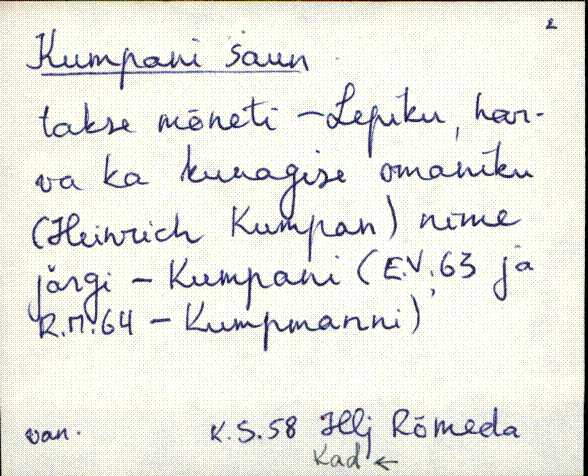 2
Kumpani saun
takse mõneti – Lepiku, har-
va ka kunagise omaniku
(Heinrich Kumpan) nime
järgi – Kumpani (E.V. 63 ja
R.M. 64 – Kumpmanni)
van. K.S. 58 Hlj Rõmeda
Kad ←